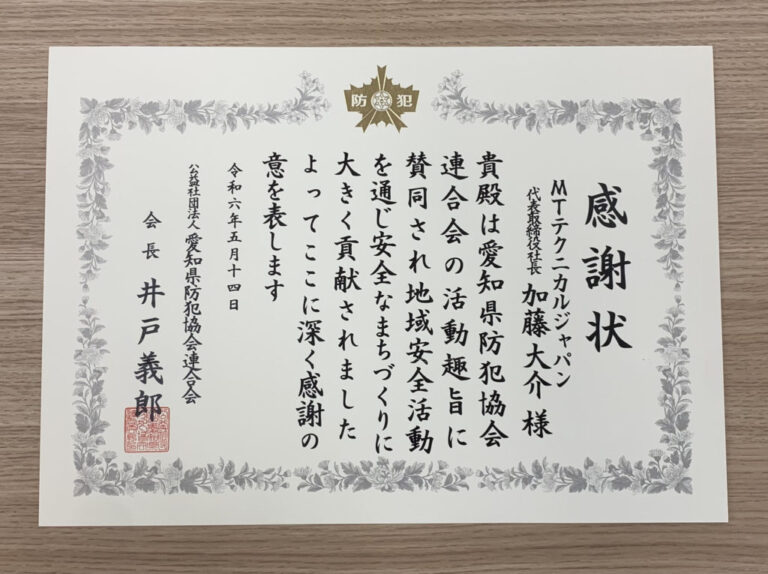 防犯
感謝状
MTテクニカルジャパン
代表取締役社長 加藤大介 様
貴殿は愛知県防犯協会
連合会の活動趣旨に
賛同され地域安全活動
を通じ安全なまちづくりに
大きく貢献されました
よってここに深く感謝の
意を表します
令和六年五月十四日
公益社団法人 愛知県防犯協会連合会
会長 井戸義郎